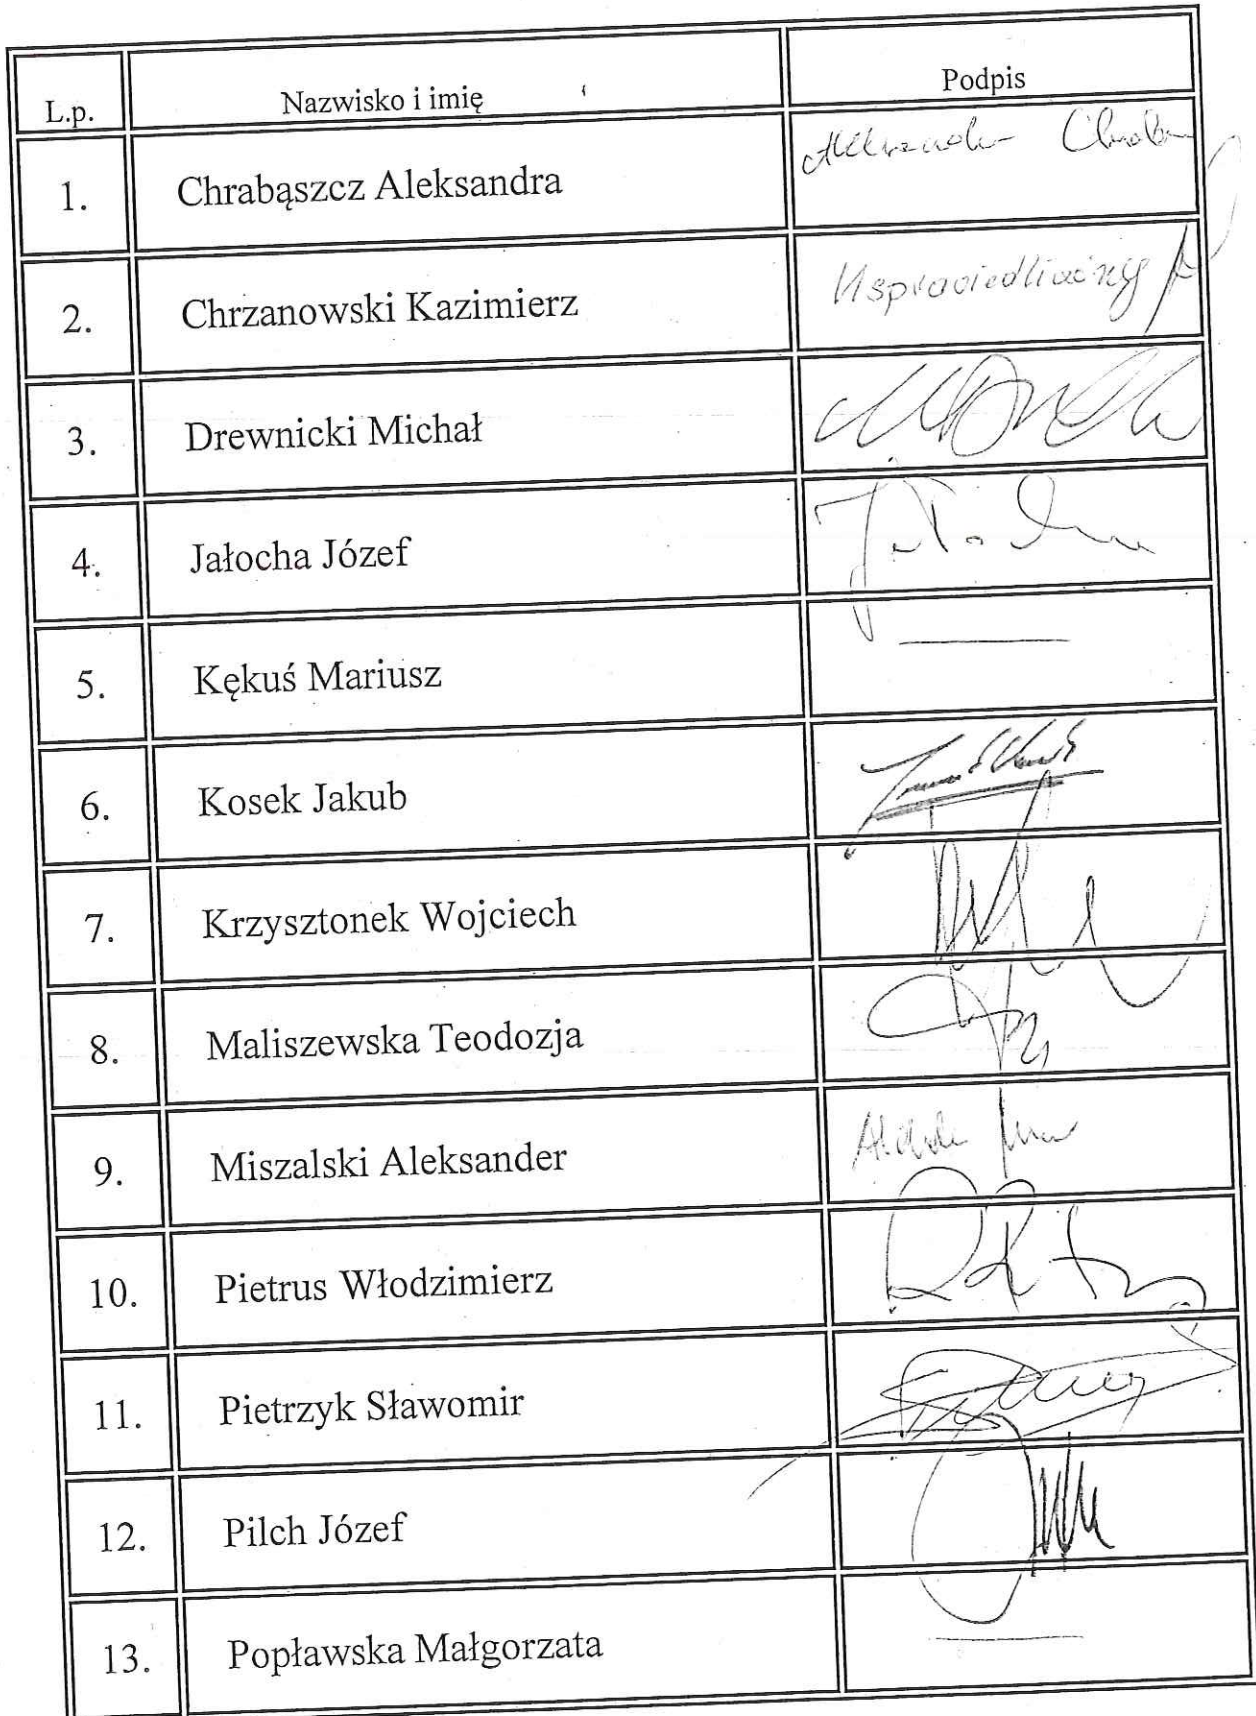 L.p. Nazwisko i imię Podpis
1. Chrabąszcz Aleksandra
2. Chrzanowski Kazimierz Usprawiedliwiony
3. Drewnicki Michał
4. Jałocha Józef
5. Kękuś Mariusz
6. Kosek Jakub
7. Krzysztonek Wojciech
8. Maliszewska Teodozja
9. Miszalski Aleksander
10. Pietrus Włodzimierz
11. Pietrzyk Sławomir
12. Pilch Józef
13. Popławska Małgorzata